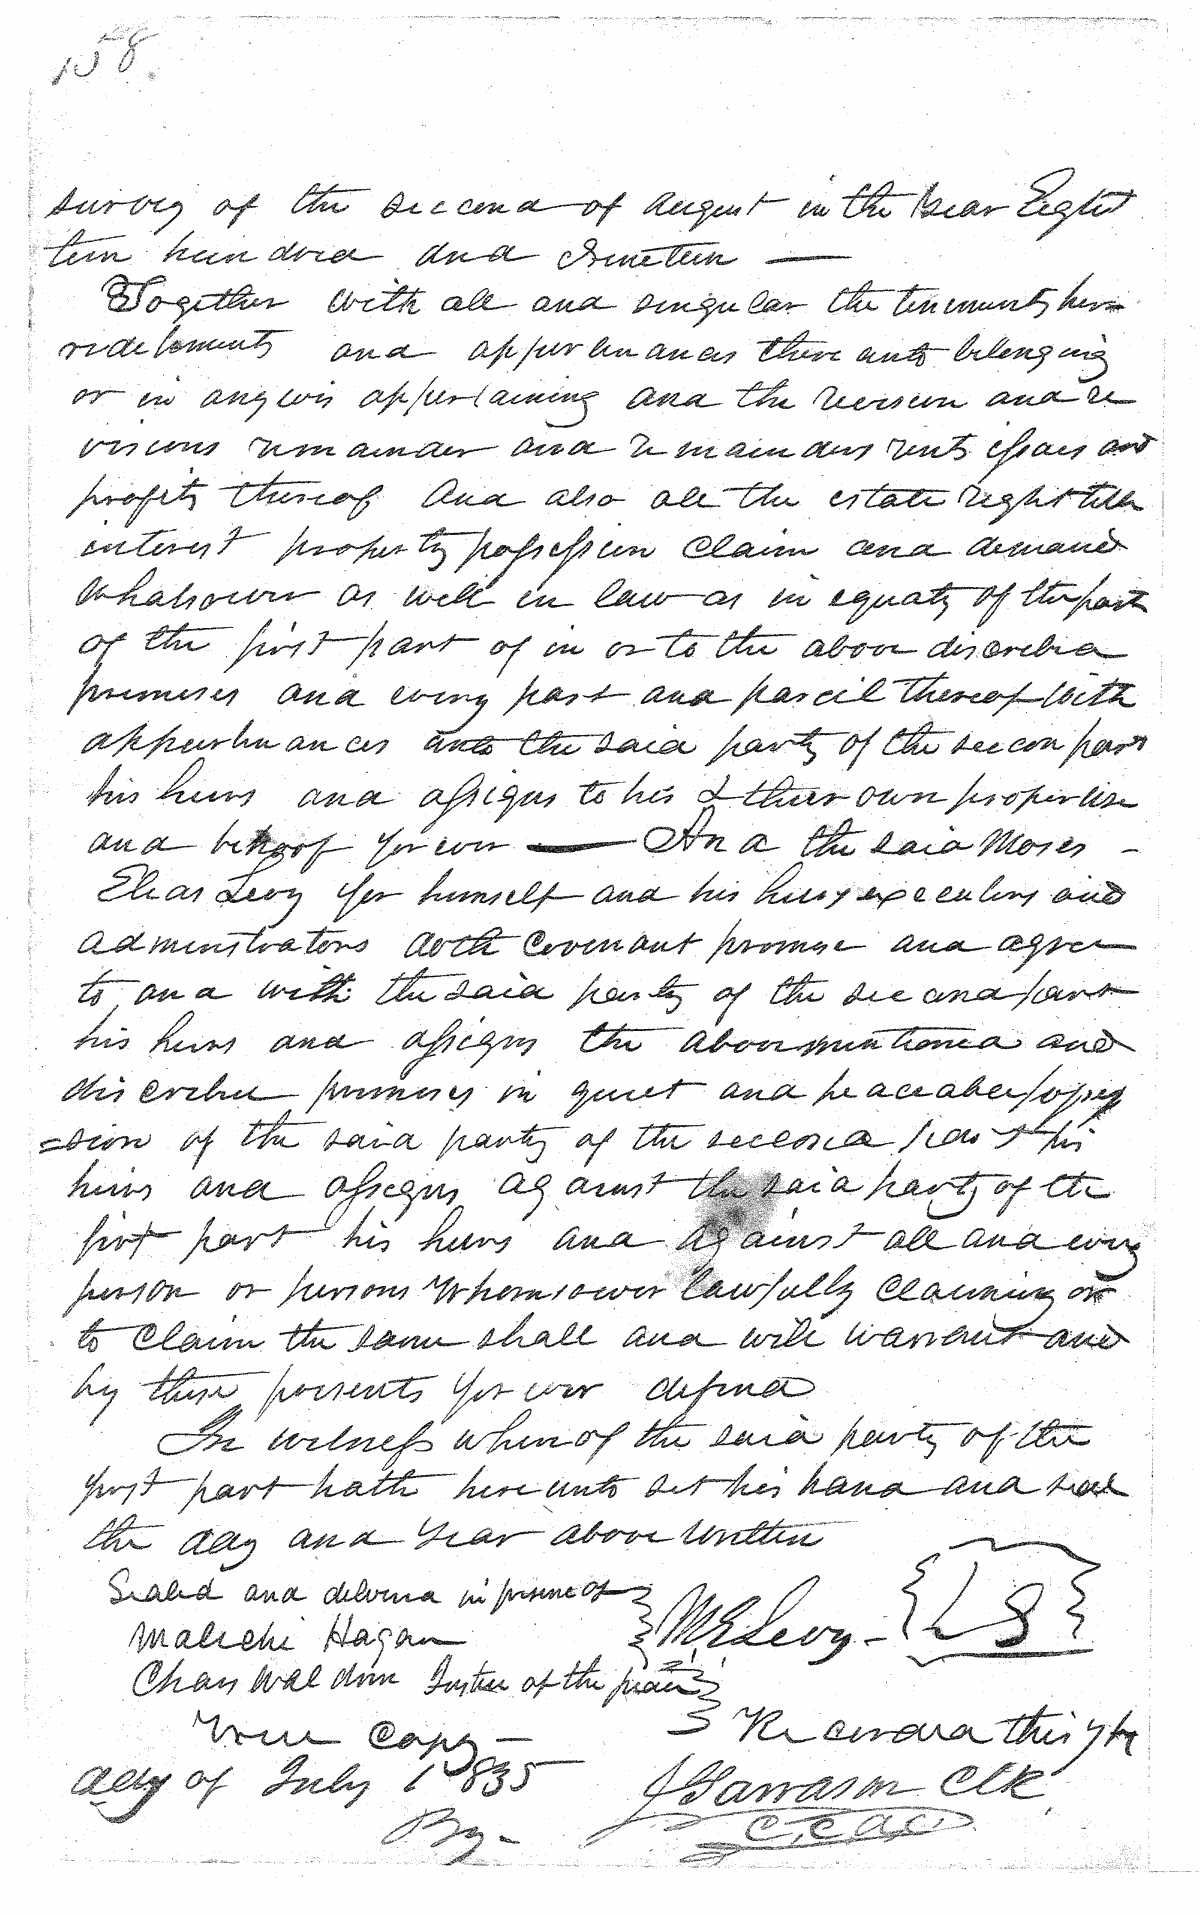 158.
survey of the second of August in the year Eight
teen hundred and Nineteen —
Together with all and singular the tenements here
reditements and appurtenances there unto belonging
or in anywis appertaining and the reversion and re
visions remainder and remainders rents issues and
profits thereof And also all the estate right title
interest property possession claim and demand
whatsoever as well in law as in equaty of the part
of the first part of in or to the above discribed
premises and every part and parcil thereof with
appurtenances unto the said party of the secon part
his heirs and assigns to his & their own proper use
and behoof for ever — And the said Moses -
Elias Levy for himself and his heirs executors and
administrators doth covenant promise and agree
to and with the said party of the second part
his heirs and assigns the above mentioned and
discribed premises in quiet and peaceable posses
=sion of the said party of the second part his
heirs and assigns against the said party of the
first part his heirs and against all and every
person or persons whomsoever lawfully claiming or
to claim the same shall and will warrant and
by these presents for ever defend
In witness whereof the said party of the
first part hath hereunto set his hand and seal
the day and year above written
Sealed and deliverd in presence of
M. E. Levy - {L S}
Malichi Hagan
Chas Waldron Justice of the peace
True Copy - Recorded this 7th
day of July 1835
Garrason Clk
By - C. C. A. C.